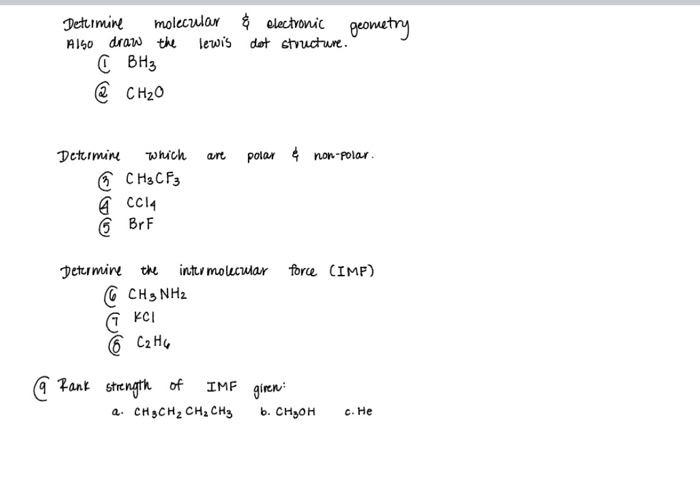 Determine molecular & electronic geometry
Also draw the lewis dot structure.
① BH3
② CH2O
Determine which are polar & non-polar.
③ CH3CF3
④ CCl4
⑤ BrF
Determine the intermolecular force (IMF)
⑥ CH3NH2
⑦ KCl
⑧ C2H6
⑨ Rank strength of IMF given:
a. CH3CH2CH2CH3 b. CH3OH c. He